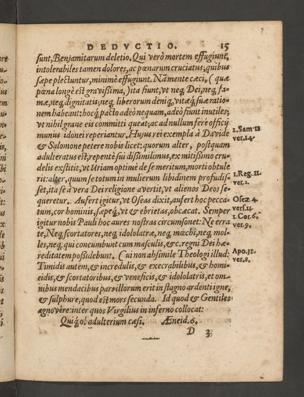 DEDVCTIO. 15
sunt, Beniamitarum deletio. Qui verò mortem effugiunt,
intolerabiles tamen dolores, ac pœnarum cruciatus, quibus
sæpe plectuntur, minimè effugiunt. Nã mente cæci, (quæ
pœna longè est gravissima,) ita fiunt, vt neq; Dei, neq; fa-
mæ, neq; dignitatis, neq; liberorum deniq; vitæq́; suæ ratio-
nem habeant: hocq́; pacto adeò nequam, adeò fiunt inutiles,
vt nihil gnave eis committi queat; ac ad nullum ferè officij
munus idonei reperiantur. Hujus rei exempla à Davide
& Salomone petere nobis licet: quorum alter, postquam
adulteratus est, repentè sui dißimilimus, ex mitißimo cru-
delis
1.Sam 12
ver. 14.
rit: alter, quum se totum in mulierum libidinem profudis-
set, ita se à vera Dei religione avertit, vt alienos Deos se-
1.Reg. 11.
ver. 1.
queretur. Aufert igitur, vt Oseas dixit, aufert hoc pecca-
tum, cor hominis, sæpeq́;, vt & ebrietas, obcæcat. Semper
igitur nobis Pauli hoc aures nostras circumsonet: Ne erra-
Oseæ 4.
ver. 11.
1. Cor. 6.
ver. 9.
te, Neq; scortatores, neq; idololatræ, neq; mœchi, neq; mol-
les, neq; qui concumbut cum masculis, &c. regni Dei hæ-
reditatem possidebunt. Cui non absimile Theologi illud:
Timidis autem, & incredulis, & execrabilibus, & homi-
Apo. 21.
ver. 8.
cidis, & scortatoribus, & veneficis, & idololatris, et om-
nibus mendacibus pars illorum erit in stagno ardenti igne,
& sulphure, quod est mors secunda. Id quod & Gentiles
agnovêre: inter quos Virgilius in inferno collocat:
Quiq́; ob adulterium cæsi. Æneid. 6.
D 3